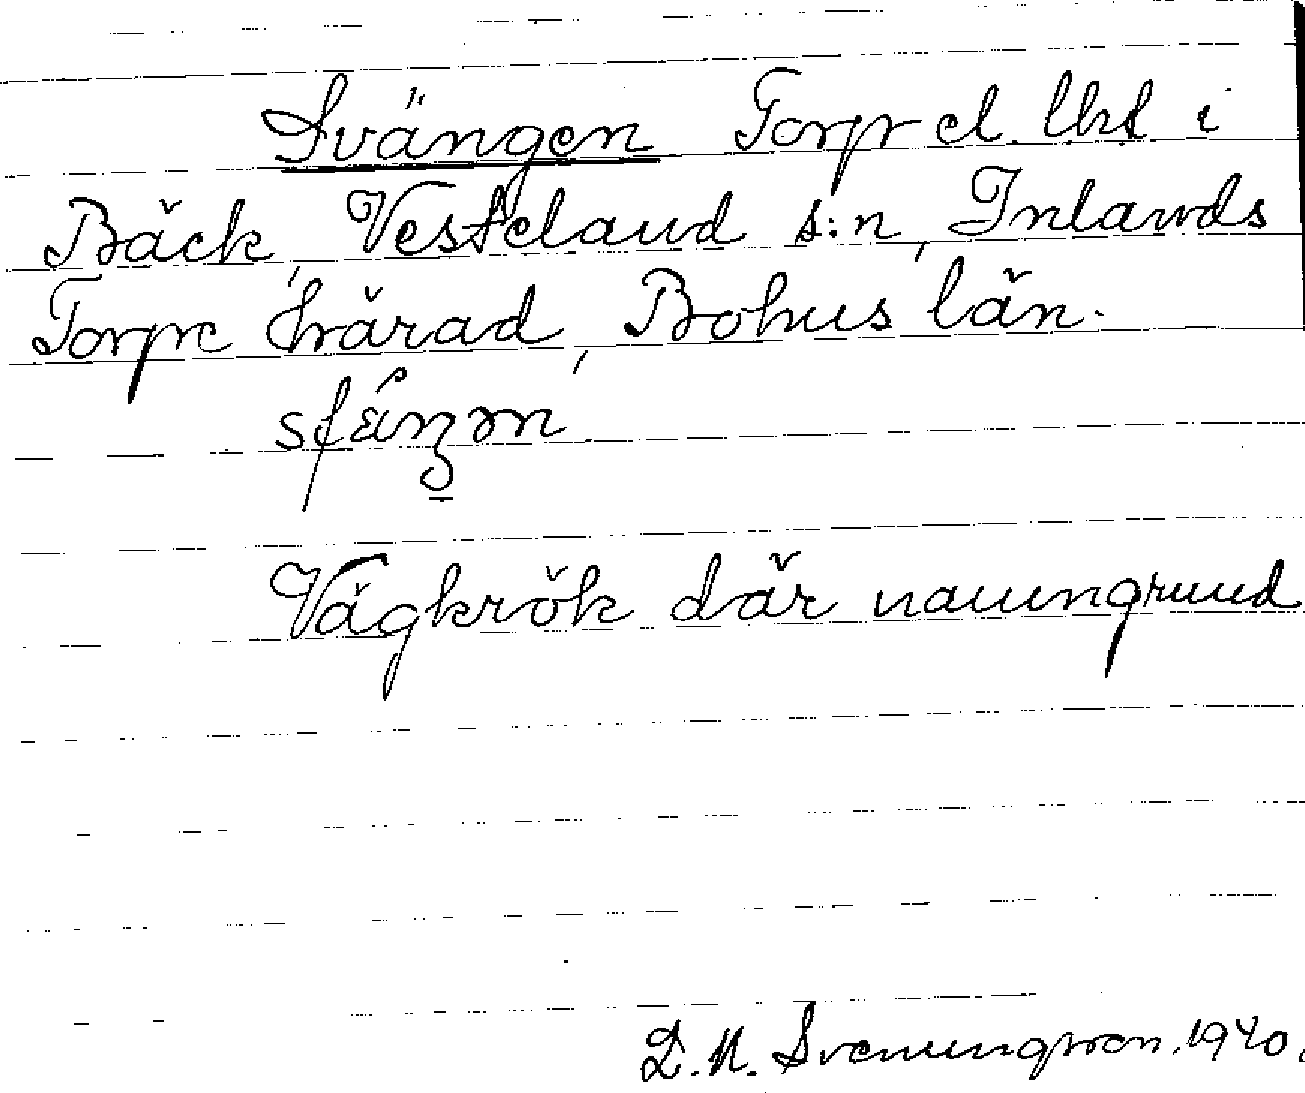 Svängen Torp el. lht i
Bäck, Vesteland s:n, Inlands
Torpe härad, Bohus län.
Vägkrök där namngrund
D. N. Svenungsson. 1940.